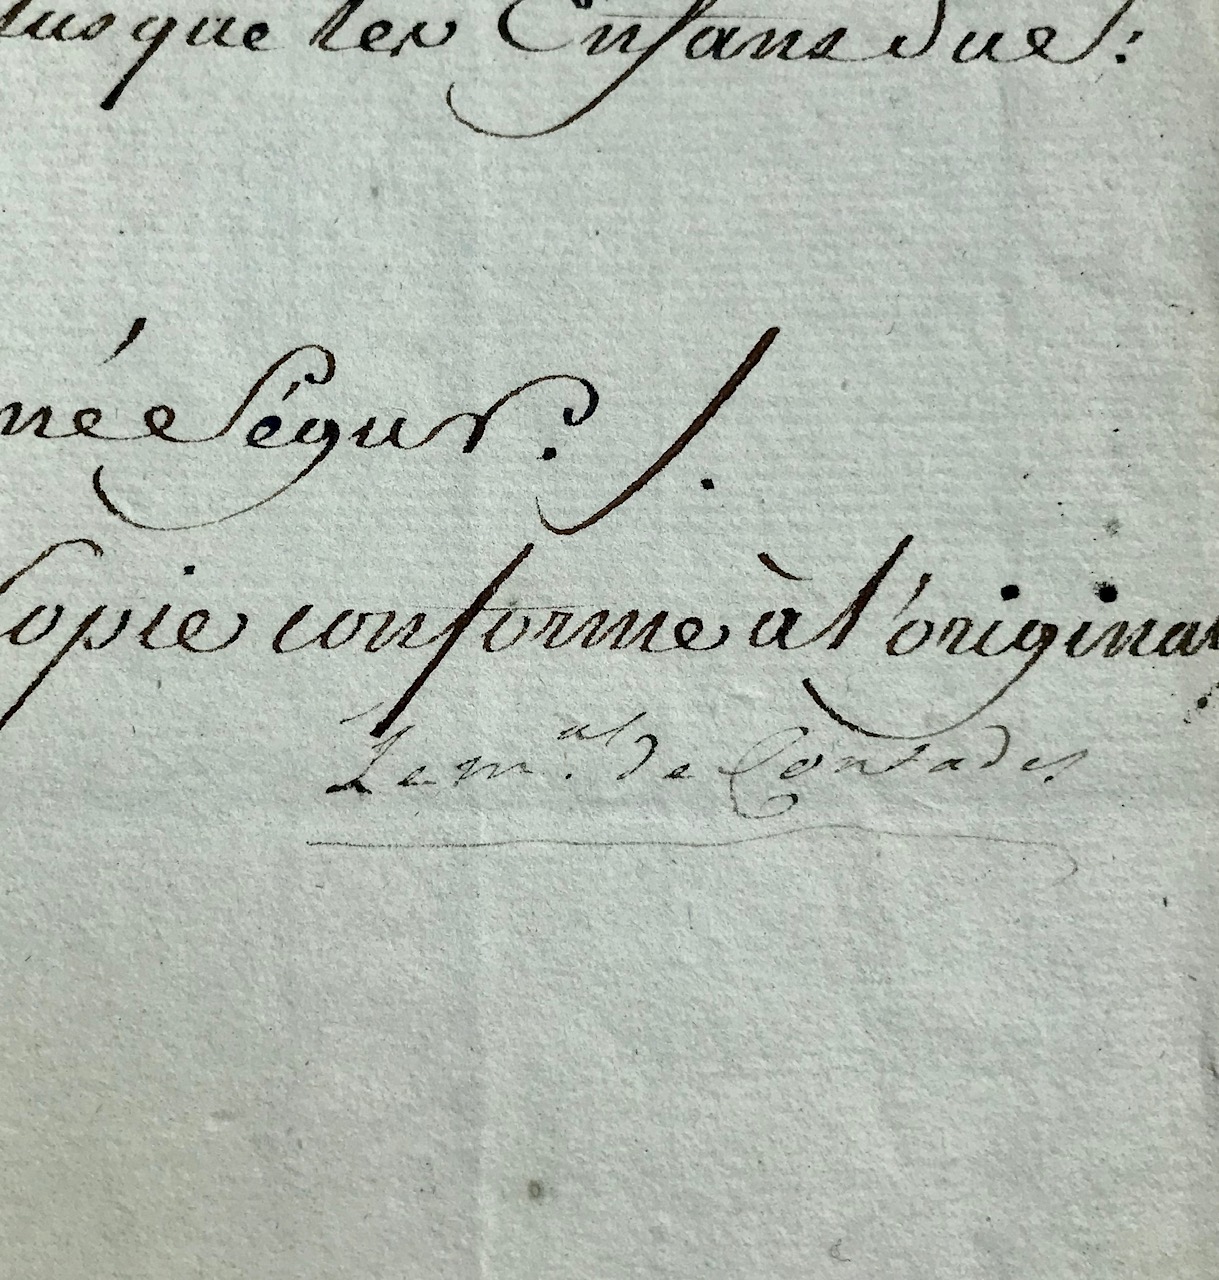 plus que les Enfans dud.:
né Ségur. /.
Copie conforme à l'original
Le m.al de Contades